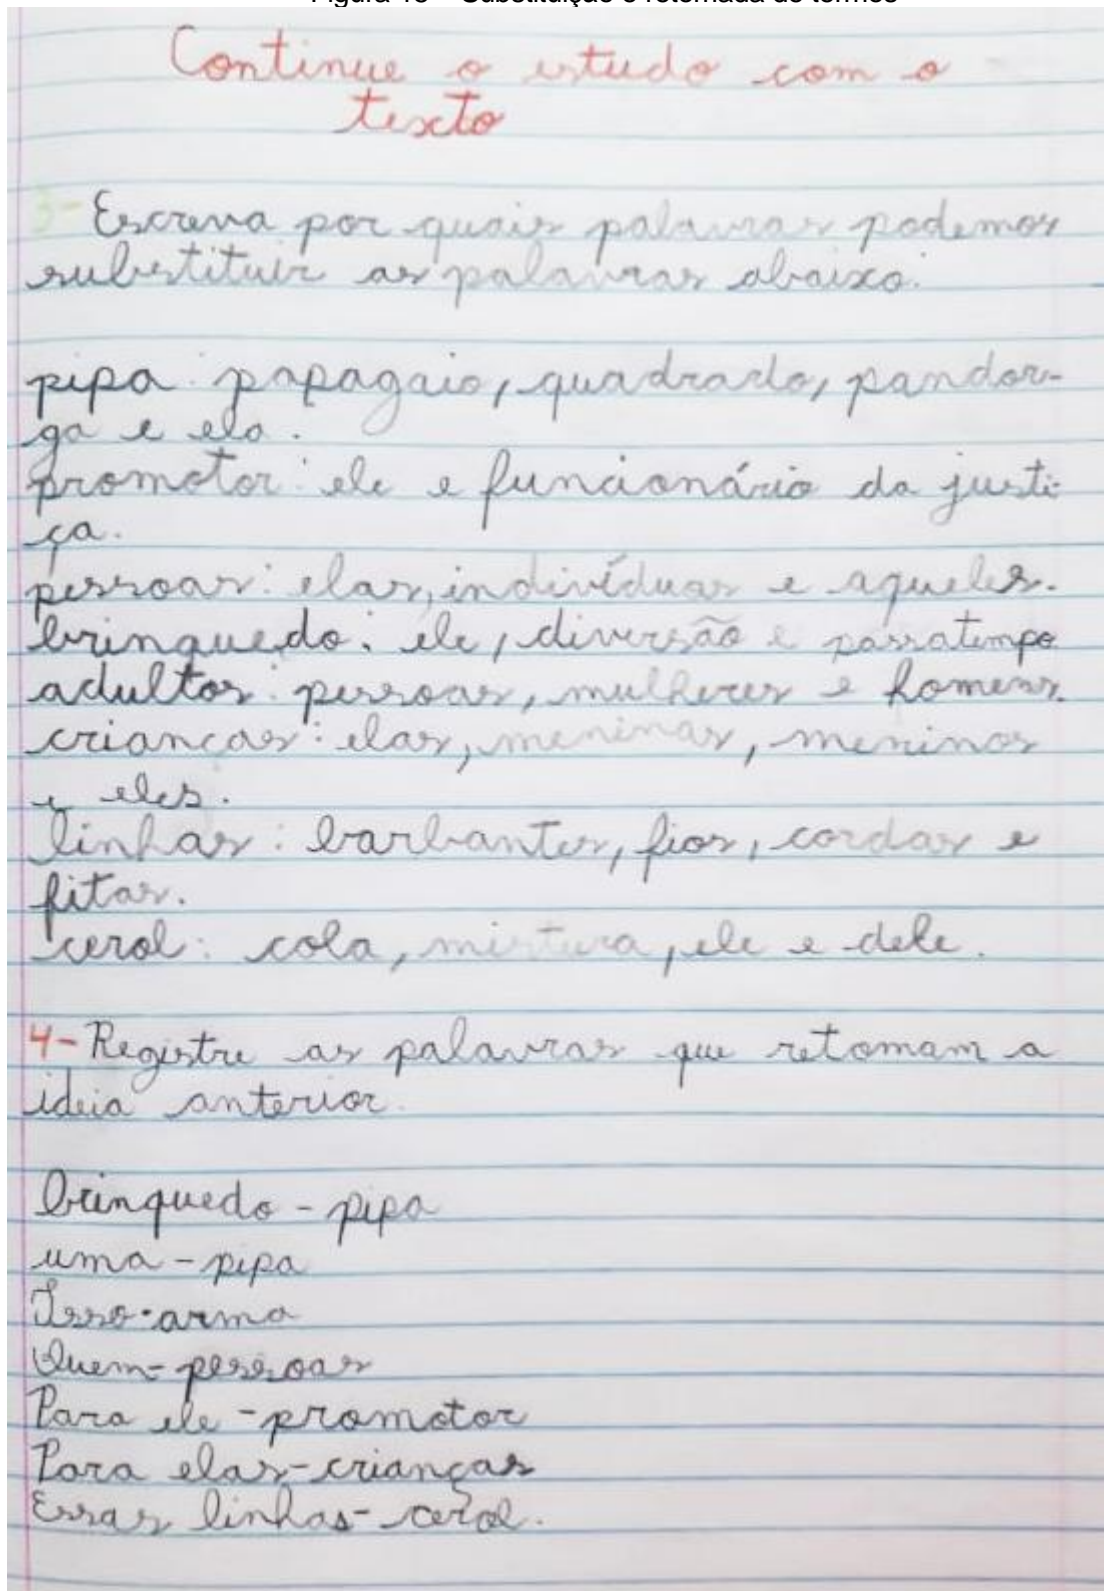 Continue o estudo com o
texto
3- Escreva por quais palavras podemos
substituir as palavras abaixo.
pipa: papagaio, quadrado, pandor-
ga e ela.
promotor: ele e funcionário da justi-
ça.
pessoas: elas, indivíduos e aqueles.
brinquedo: ele, diversão e passatempo
adultos: pessoas, mulheres e homens.
crianças: elas, meninas, meninos
e eles.
linhas: barbantes, fios, cordas e
fitas.
cerol: cola, mistura, ele e dele.
4- Registre as palavras que retomam a
ideia anterior.
brinquedo - pipa
uma - pipa
Isso - arma
Quem - pessoas
Para ele - promotor
Para elas - crianças
Essas linhas - cerol.